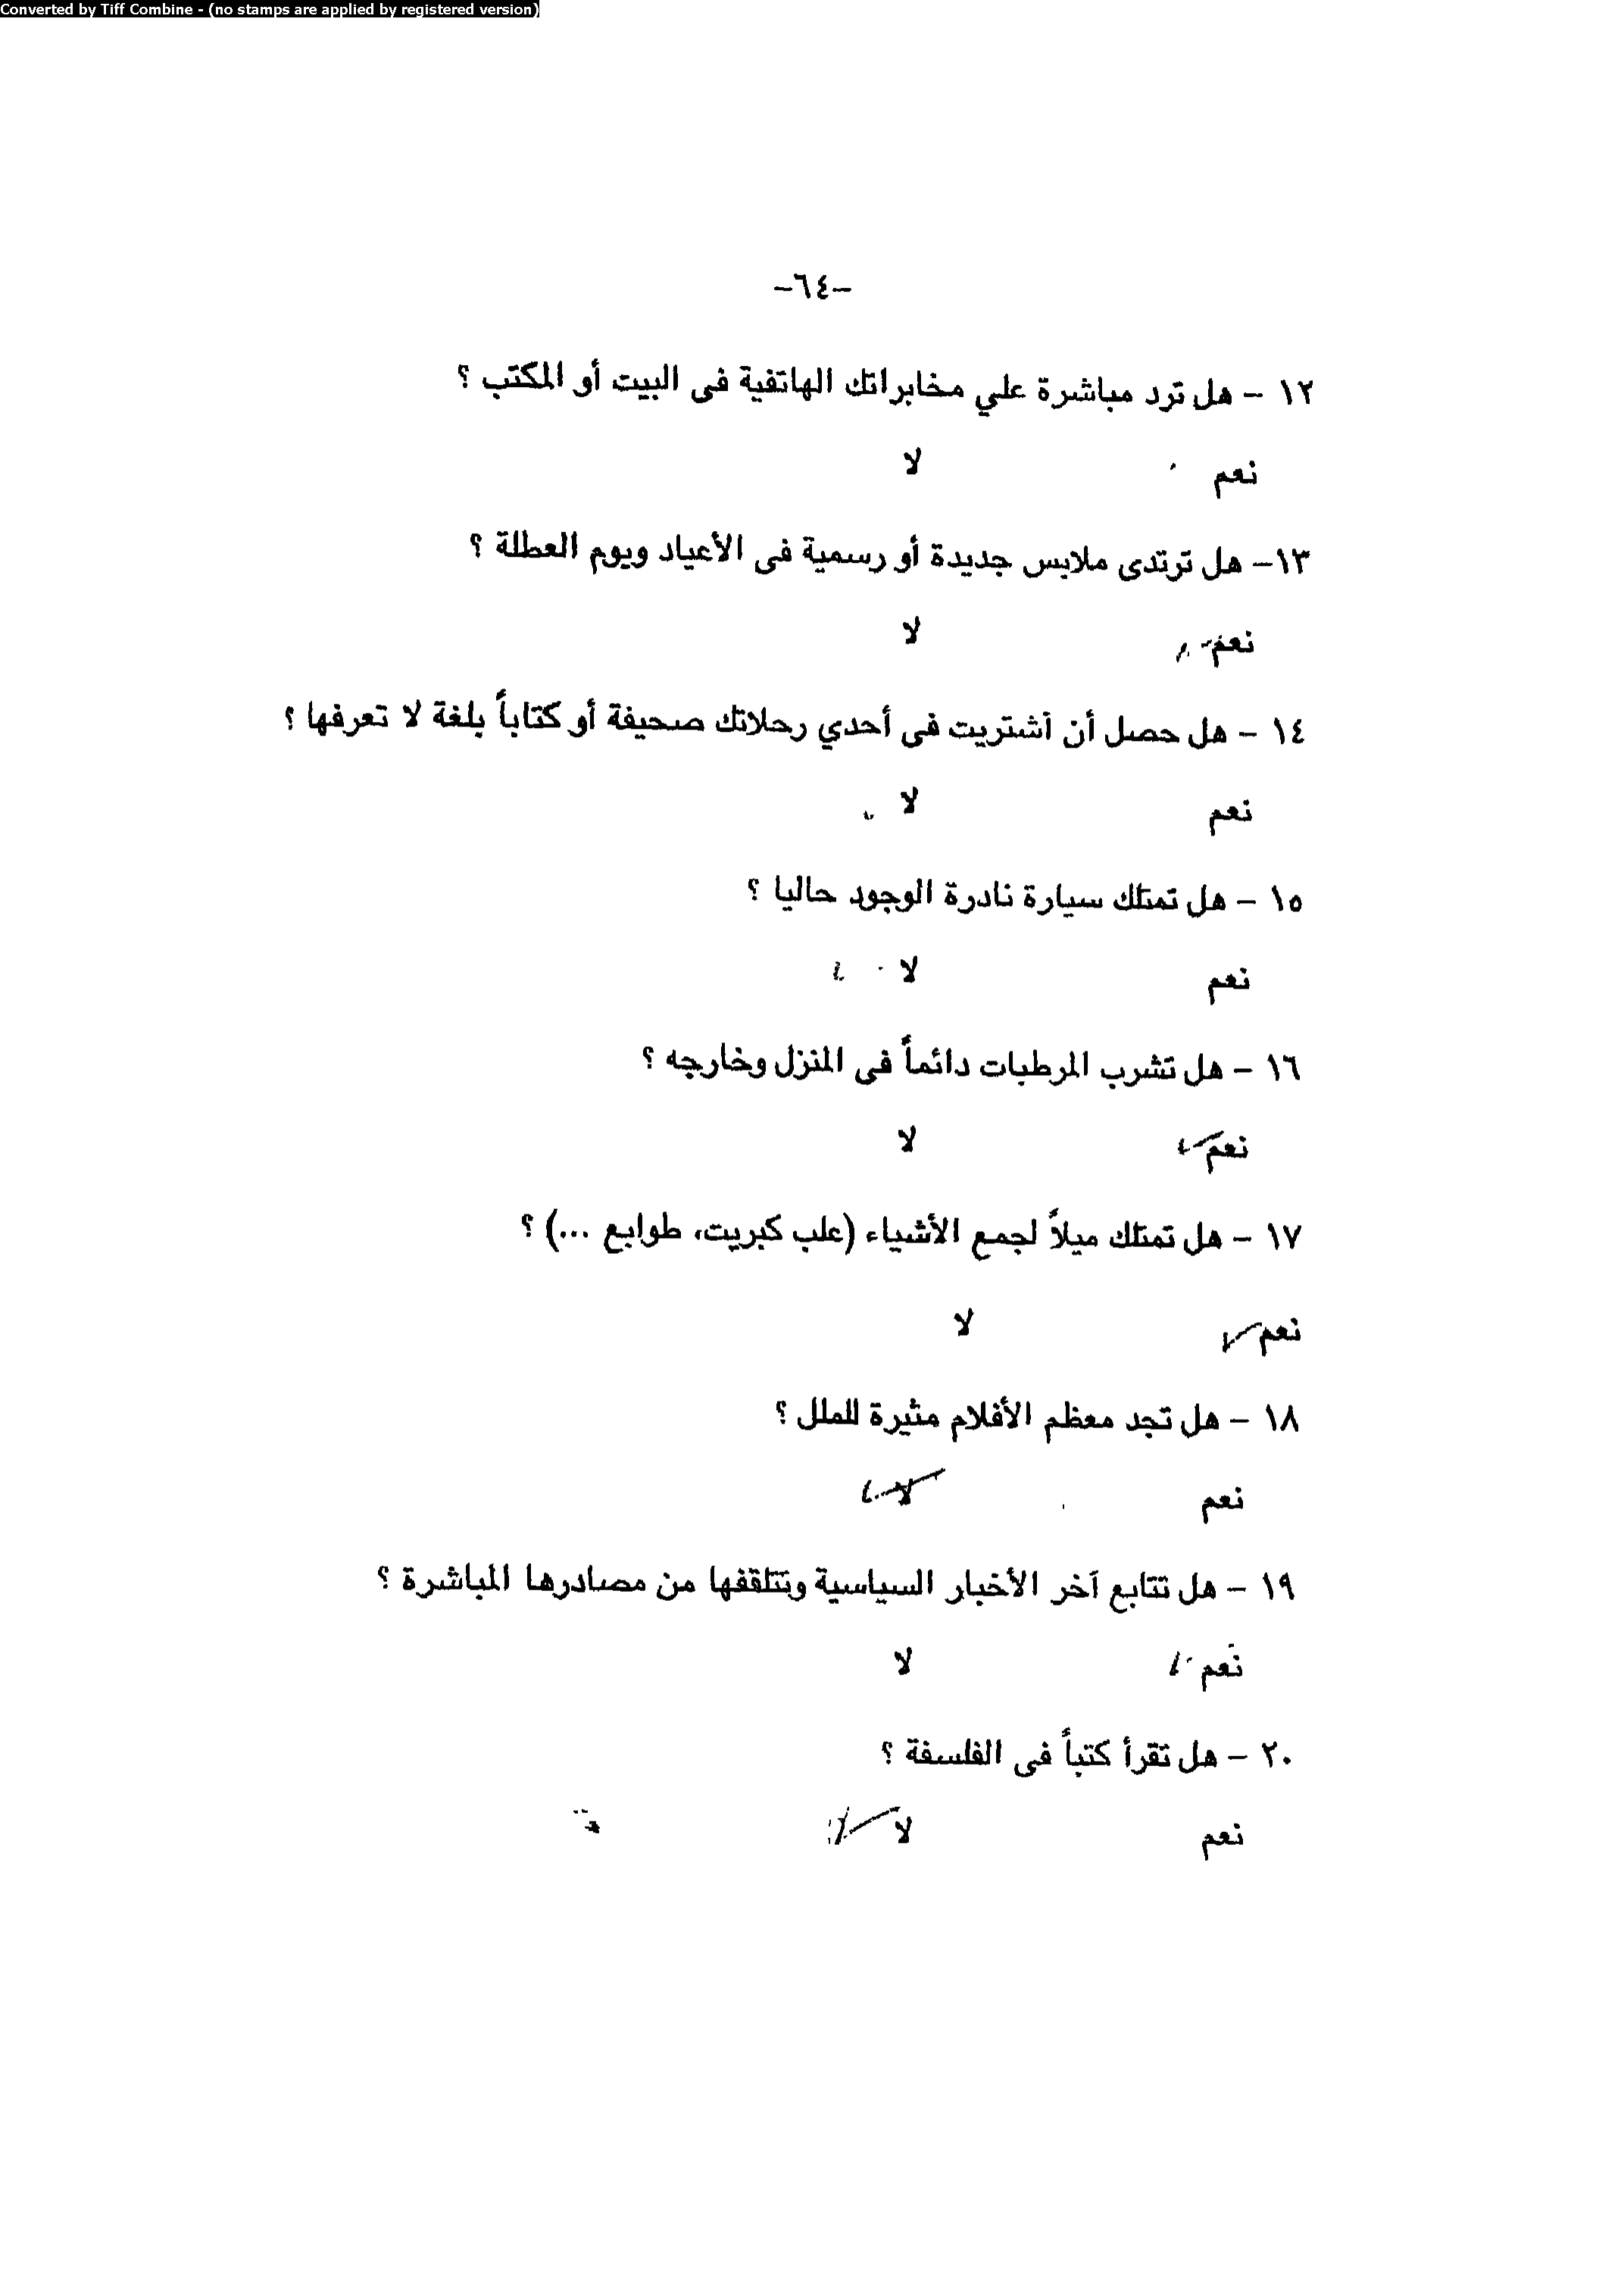 Converted by Tiff Combine - (no stamps are applied by registered version)
-٦٤-
١٢ - هل ترد مباشرة علي مخابراتك الهاتفية فى البيت أو المكتب ؟
نعم لا
١٣- هل ترتدى ملابس جديدة أو رسمية فى الأعياد ويوم العطلة ؟
نعم لا
١٤ - هل حصل أن أشتريت فى أحدي رحلاتك صحيفة أو كتاباً بلغة لا تعرفها ؟
نعم لا
١٥ - هل تمتلك سيارة نادرة الوجود حاليا ؟
نعم لا
١٦ - هل تشرب المرطبات دائماً فى المنزل وخارجه ؟
نعم لا
١٧ - هل تمتلك ميلاً لجمع الأشياء (علب كبريت، طوابع ...) ؟
نعم لا
١٨ - هل تجد معظم الأفلام مثيرة للملل ؟
نعم لا
١٩ - هل تتابع آخر الأخبار السياسية وتتلقفها من مصادرها المباشرة ؟
نعم لا
٢٠ - هل تقرأ كتبأ فى الفلسفة ؟
نعم لا